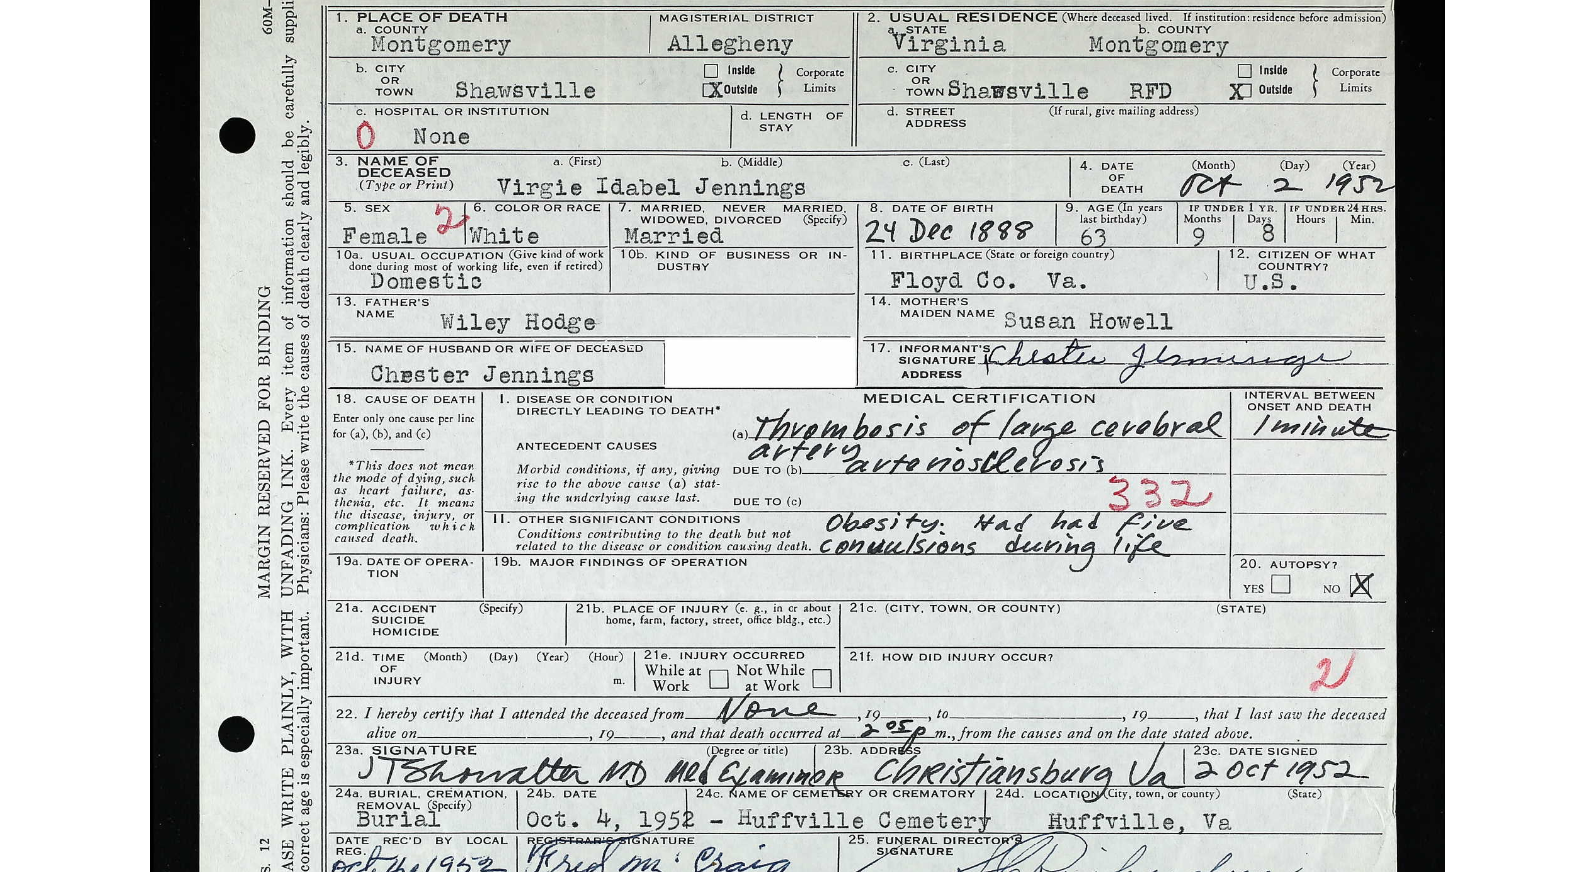 1. PLACE OF DEATH
a. COUNTY
Montgomery
MAGISTERIAL DISTRICT
Allegheny
2. USUAL RESIDENCE (Where deceased lived. If institution: residence before admission)
a. STATE
Virginia
b. COUNTY
Montgomery
b. CITY OR TOWN Shawsville
Inside
X Outside
Corporate Limits
c. CITY OR TOWN Shawsville RFD
Inside
X Outside
Corporate Limits
c. HOSPITAL OR INSTITUTION
0 None
d. LENGTH OF STAY
d. STREET ADDRESS (If rural, give mailing address)
3. NAME OF DECEASED (Type or Print)
a. (First) b. (Middle) c. (Last)
Virgie Idabel Jennings
4. DATE OF DEATH
(Month) (Day) (Year)
Oct 2 1952
5. SEX
Female 2
6. COLOR OR RACE
White
7. MARRIED, NEVER MARRIED, WIDOWED, DIVORCED (Specify)
Married
8. DATE OF BIRTH
24 Dec 1888
9. AGE (In years last birthday)
63
IF UNDER 1 YR.
Months Days
9 8
IF UNDER 24 HRS.
Hours Min.
10a. USUAL OCCUPATION (Give kind of work done during most of working life, even if retired)
Domestic
10b. KIND OF BUSINESS OR INDUSTRY
11. BIRTHPLACE (State or foreign country)
Floyd Co. Va.
12. CITIZEN OF WHAT COUNTRY?
U.S.
13. FATHER'S NAME
Wiley Hodge
14. MOTHER'S MAIDEN NAME Susan Howell
15. NAME OF HUSBAND OR WIFE OF DECEASED
Chester Jennings
17. INFORMANT'S SIGNATURE Chester Jennings
ADDRESS
18. CAUSE OF DEATH
Enter only one cause per line for (a), (b), and (c)
*This does not mean the mode of dying, such as heart failure, asthenia, etc. It means the disease, injury, or complication which caused death.
I. DISEASE OR CONDITION DIRECTLY LEADING TO DEATH*
MEDICAL CERTIFICATION
(a) Thrombosis of large cerebral artery
ANTECEDENT CAUSES
Morbid conditions, if any, giving rise to the above cause (a) stating the underlying cause last.
DUE TO (b) arteriosclerosis
DUE TO (c)
332
INTERVAL BETWEEN ONSET AND DEATH
1 minute
II. OTHER SIGNIFICANT CONDITIONS
Conditions contributing to the death but not related to the disease or condition causing death.
Obesity. Had had five convulsions during life
19a. DATE OF OPERATION
19b. MAJOR FINDINGS OF OPERATION
20. AUTOPSY?
YES NO X
21a. ACCIDENT SUICIDE HOMICIDE (Specify)
21b. PLACE OF INJURY (e. g., in or about home, farm, factory, street, office bldg., etc.)
21c. (CITY, TOWN, OR COUNTY) (STATE)
21d. TIME OF INJURY (Month) (Day) (Year) (Hour) m.
21e. INJURY OCCURRED
While at Work Not While at Work
21f. HOW DID INJURY OCCUR?
2
22. I hereby certify that I attended the deceased from None, 19__, to__, 19__, that I last saw the deceased
alive on__, 19__, and that death occurred at 2 05 P m., from the causes and on the date stated above.
23a. SIGNATURE (Degree or title)
JTShowalter MD Med Examinor
23b. ADDRESS
Christiansburg Va
23c. DATE SIGNED
2 Oct 1952
24a. BURIAL, CREMATION, REMOVAL (Specify)
Burial
24b. DATE
Oct. 4, 1952 -
24c. NAME OF CEMETERY OR CREMATORY
Huffville Cemetery
24d. LOCATION (City, town, or county) (State)
Huffville, Va
DATE REC'D BY LOCAL REG.
REGISTRAR'S SIGNATURE
Fred Mc Craig
25. FUNERAL DIRECTOR'S SIGNATURE
MARGIN RESERVED FOR BINDING
WRITE PLAINLY, WITH UNFADING INK. Every item of information should be carefully
correct age is especially important. Physicians: Please write the causes of death clearly and legibly.
60M-
S. 12